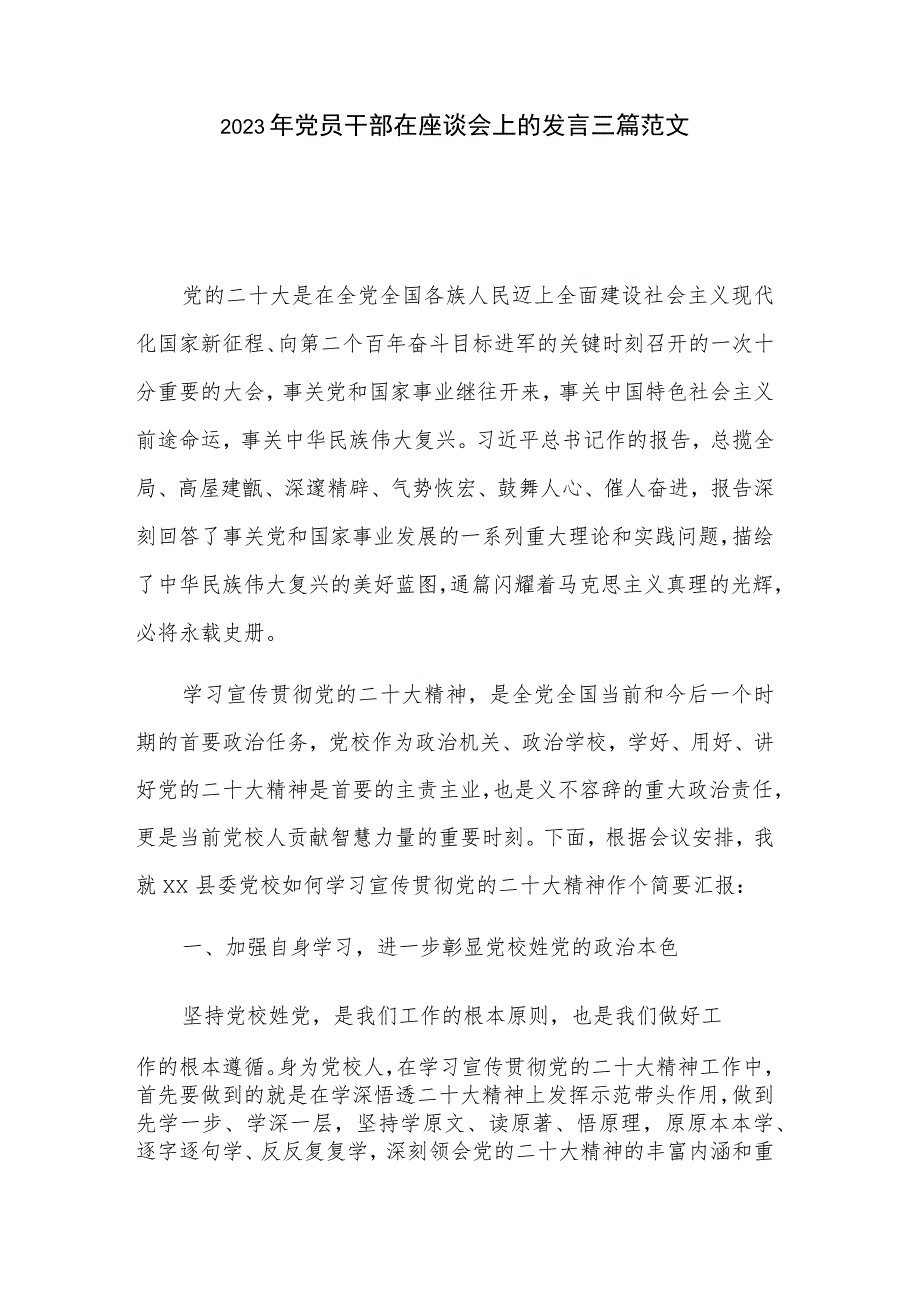 2023年党员干部在座谈会上的发言三篇范文
党的二十大是在全党全国各族人民迈上全面建设社会主义现代
化国家新征程、向第二个百年奋斗目标进军的关键时刻召开的一次十
分重要的大会，事关党和国家事业继往开来，事关中国特色社会主义
前途命运，事关中华民族伟大复兴。习近平总书记作的报告，总揽全
局、高屋建甑、深邃精辟、气势恢宏、鼓舞人心、催人奋进，报告深
刻回答了事关党和国家事业发展的一系列重大理论和实践问题，描绘
了中华民族伟大复兴的美好蓝图，通篇闪耀着马克思主义真理的光辉，
必将永载史册。
学习宣传贯彻党的二十大精神，是全党全国当前和今后一个时
期的首要政治任务，党校作为政治机关、政治学校，学好、用好、讲
好党的二十大精神是首要的主责主业，也是义不容辞的重大政治责任，
更是当前党校人贡献智慧力量的重要时刻。下面，根据会议安排，我
就XX县委党校如何学习宣传贯彻党的二十大精神作个简要汇报：
一、加强自身学习，进一步彰显党校姓党的政治本色
坚持党校姓党，是我们工作的根本原则，也是我们做好工
作的根本遵循。身为党校人，在学习宣传贯彻党的二十大精神工作中，
首先要做到的就是在学深悟透二十大精神上发挥示范带头作用，做到
先学一步、学深一层，坚持学原文、读原著、悟原理，原原本本学、
逐字逐句学、反反复复学，深刻领会党的二十大精神的丰富内涵和重